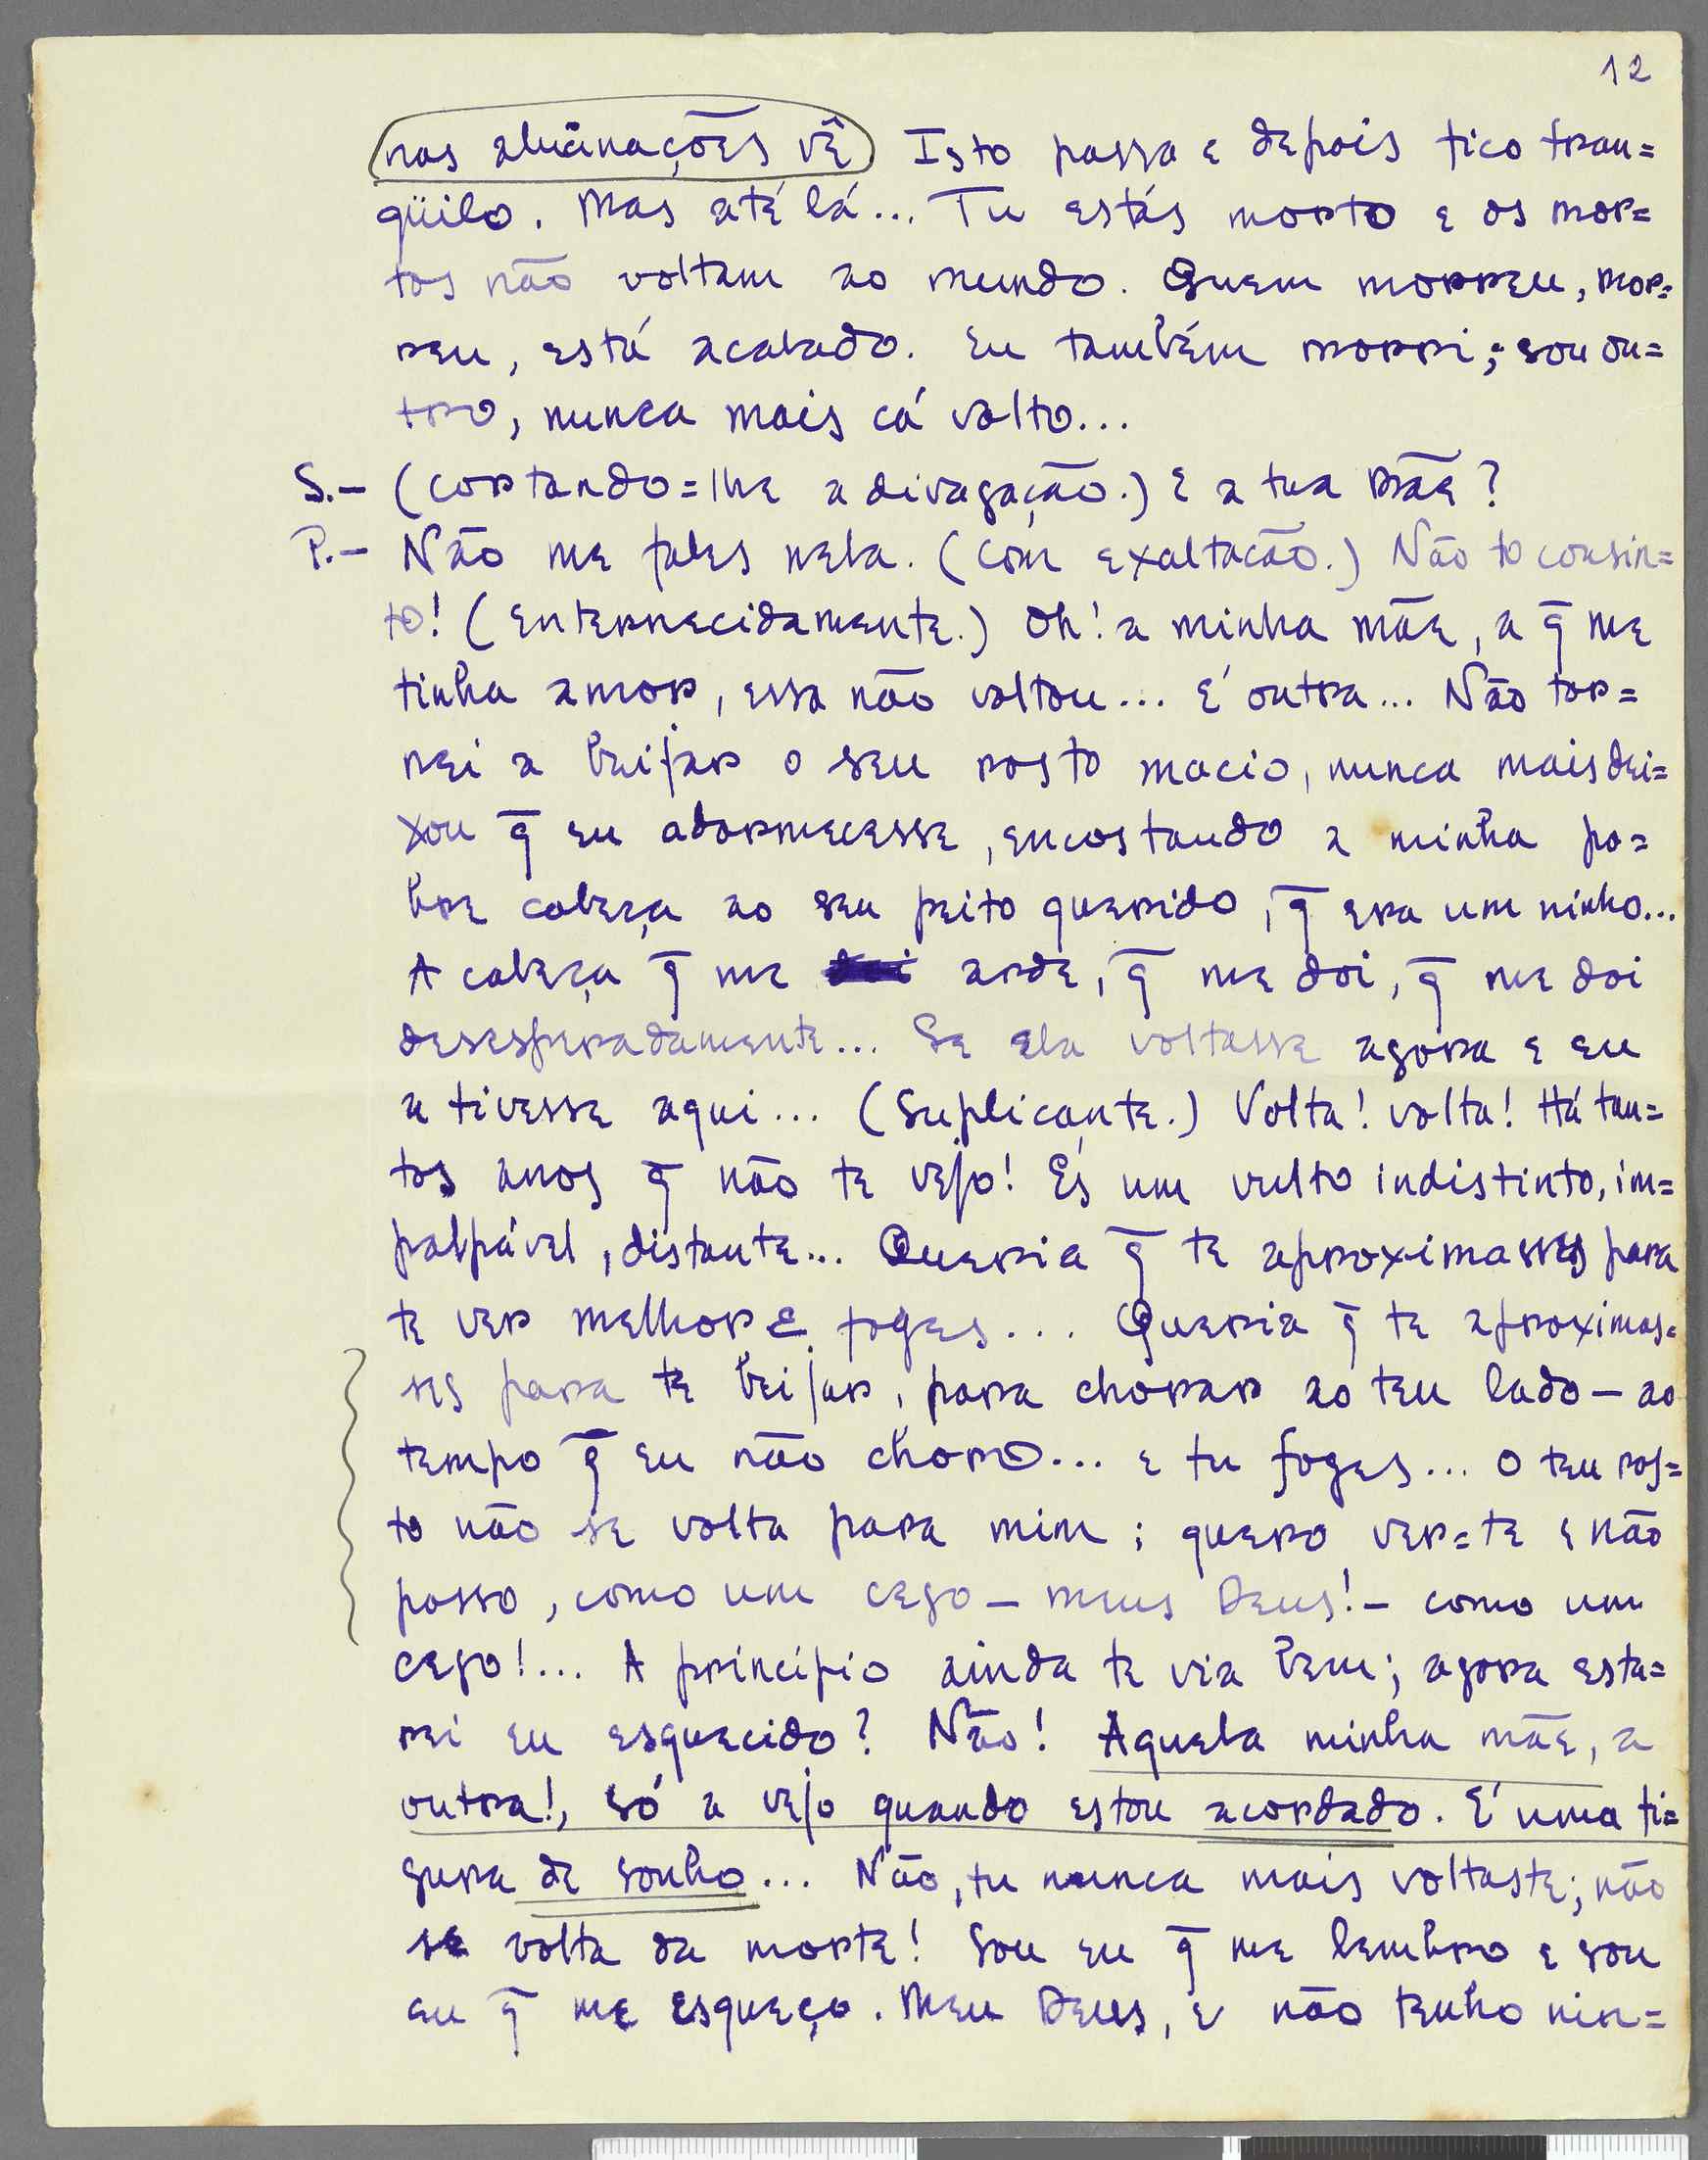 12
nas alucinações vê Isto passa e depois fico tran=
qüilo. Mas até lá... Tu estás morto e os mor=
tos não voltam ao mundo. Quem morreu, mor=
reu, está acabado. Eu também morri; sou ou=
tro, nunca mais cá volto...
S.— (cortando=lhe a divagação.) E a tua mãe?
P.— Não me fales nela. (Com exaltação.) Não to consin=
to! (Enternecidamente.) Oh! a minha mãe, a q̄ me
tinha amor, essa não voltou... É outra... Não tor=
nei a beijar o seu rosto macio, nunca mais dei=
xou q̄ eu adormecesse, encostando a minha po=
bre cabeça ao seu peito querido, q̄ era um ninho...
A cabeça q̄ me arde, q̄ me doi, q̄ me doi
desesperadamente... Se ela voltasse agora e eu
a tivesse aqui... (Suplicante.) Volta! volta! Há tan=
tos anos q̄ não te vejo! És um vulto indistinto, im=
palpável, distante... Queria q̄ te aproximasses para
te ver melhor e foges... Queria q̄ te aproximas=
ses para te beijar, para chorar ao teu lado — ao
tempo q̄ eu não choro... e tu foges... O teu ros=
to não se volta para mim; quero ver=te e não
posso, como um cego — meus Deus! — como um
cego!... A princípio ainda te via bem; agora esta=
rei eu esquecido? Não! Aquela minha mãe, a
outra!, só a vejo quando estou acordado. É uma fi=
gura de sonho... Não, tu nunca mais voltaste; não
se volta da morte! Sou eu q̄ me lembro e sou
eu q̄ me esqueço. Meu Deus, e não tenho nin=